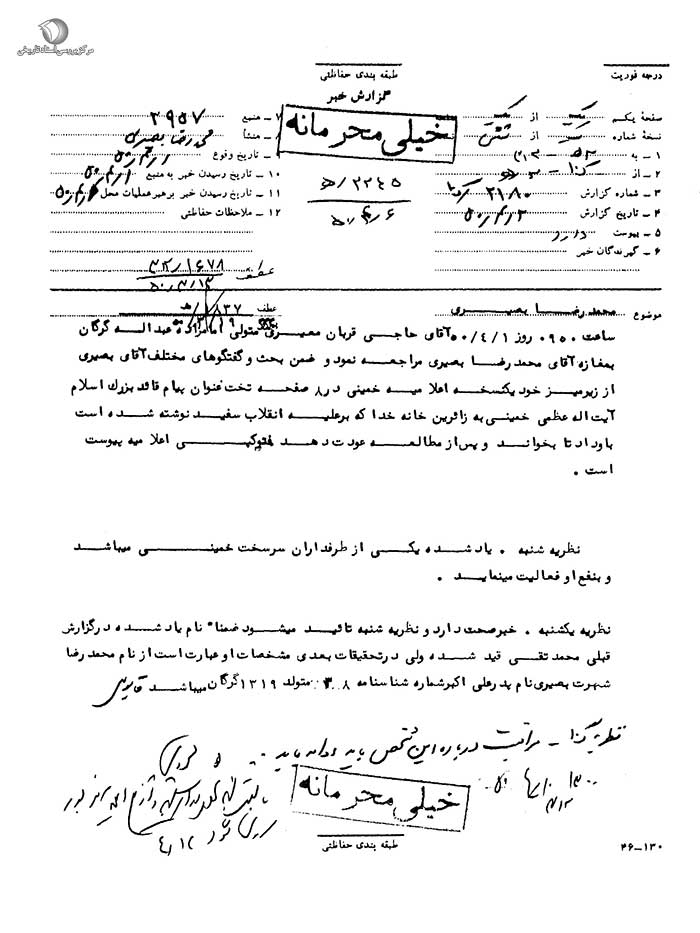 مرکز بررسی اسناد تاریخی
طبقه بندی حفاظتی
درجه فوریت
گزارش خبر
خیلی محرمانه
صفحه یکم از
نسخه شماره از
۱ ـ به ۳۱۲
۲ ـ از
۳ ـ شماره گزارش ۲۱۸۰
۴ ـ تاریخ گزارش ۵۰/۴/۳
۵ ـ پیوست دارد
۶ ـ گیرندگان خبر
۷ ـ منبع ۲۹۵۷
۸ ـ منشأ محمدرضا بصیری
۹ ـ تاریخ وقوع ۵۰/۴/۱
۱۰ ـ تاریخ رسیدن خبر به منبع ۵۰/۴/۱
۱۱ ـ تاریخ رسیدن خبر برهبر عملیات محل
۱۲ ـ ملاحظات حفاظتی
۵/۲۲۴۵
۵۰/۴/۶
عطف ۳۲/۱۶۷۸
موضوع محمد رضا بصیری
عطف ۸۳۷/ه
ساعت ۰۹۵۰ روز ۵۰/۴/۱ آقای حاجی قربان معیری متولی امامزاده عبد اله گرگان
بمغازه آقای محمد رضا بصیری مراجعه نمود و ضمن بحث و گفتگوهای مختلف آقای بصیری
از زیر میز خود یکنسخه اعلامیه خمینی در ۸ صفحه تحت عنوان پیام قائد بزرك اسلام
آیت اله عظمی خمینی به زائرین خانه خدا که بر علیه انقلاب سفید نوشته شده است
باو داد تا بخواند و پس از مطالعه عودت دهد فتوکپی اعلامیه پیوست
است .
نظریه شنبه . یاد شده یکی از طرفداران سرسخت خمینی میباشد
و بنفع او فعالیت مینماید .
نظریه یکشنبه . خبر صحت دارد و نظریه شنبه تائید میشود ضمناً نام یاد شده در گزارش
قبلی محمد تقی قید شده ولی در تحقیقات بعدی مشخصات او عبارت است از نام محمد رضا
شهرت بصیری نام پدر علی اکبر شماره شناسنامه متولد ۱۳۱۹ گرگان میباشد
نظریه ـ مراقبت درباره این شخص باید ادامه یابد
خیلی محرمانه
طبقه بندی حفاظتی
۴۶-۱۳۰